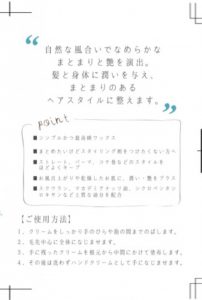 自然な風合いでなめらかな
まとまりと艶を演出。
髪と身体に潤いを与え、
まとまりのある
ヘアスタイルに整えます。
point
■シンプルかつ最高級ワックス
■まとめたいけどスタイリング剤をつけたくない方へ
■ストレート、パーマ、コテ巻などのスタイルを
ほどよくキープ
■お風呂上がりや乾燥したお肌に、潤い・艶をプラス
■スクワラン、マカデミアナッツ油、シクロペンタシ
ロキサンなど上質な油分を配合
【ご使用方法】
1、クリームをしっかり手のひらや指の間までのばします。
2、毛先中心に全体になじませます。
3、手に残ったクリームを根元から中間にかけて使布します。
4、その後は洗わずハンドクリームとして手になじませます。